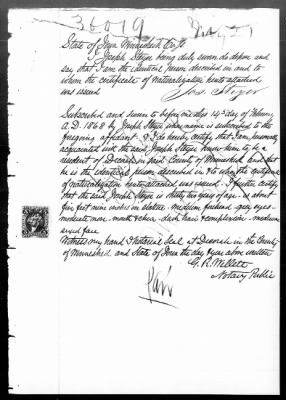 36019
State of Iowa Winneshiek Co ss
I Joseph Steyer being duly sworn do depose and
say that I am the identical person described in and to
whom the certificate of naturalization hereto attached
was issued
Jos Steyer
Subscribed and sworn to before me this 14th day of February
A.D. 1868 by Joseph Steyer whose name is subscribed to the
foregoing affidavit. & I do hereby certify that I am personally
acquainted with the said Joseph Steyer know him to be a
resident of Decorah in said County of Winneshiek and that
he is the identical person described in & to whom the certificate
of naturalization hereto attached was issued. I further certify
that the said Joseph Steyer is thirty two years of age - is about
five feet nine inches in stature - medium forehead - grey eyes -
moderate nose - mouth & chin - dark hair & complexion - medium
sized face
Witness my hand & Notarial Seal at Decorah in the County
of Winneshiek and State of Iowa the day & year above written
G. R. Willett
Notary Public